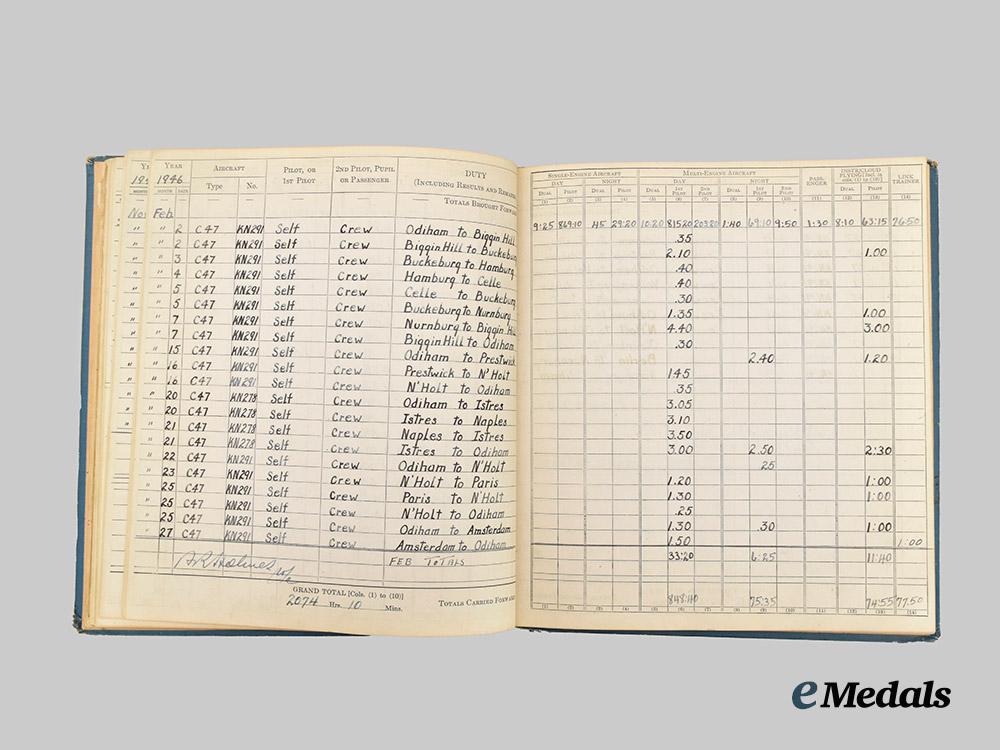 YEAR AIRCRAFT PILOT, OR 1ST PILOT 2ND PILOT, PUPIL OR PASSENGER DUTY (INCLUDING RESULTS AND REMARKS
1946 MONTH DATE Type No.
TOTALS BROUGHT FORWARD
Nov Feb.
" " 2 C47 KN291 Self Crew Odiham to Biggin Hill
" " 2 C47 KN291 Self Crew Biggin Hill to Buckeburg
" " 3 C47 KN291 Self Crew Buckeburg to Hamburg
" " 4 C47 KN291 Self Crew Hamburg to Celle
" " 5 C47 KN291 Self Crew Celle to Buckeburg
" " 5 C47 KN291 Self Crew Buckeburg to Nurnburg
" " 7 C47 KN291 Self Crew Nurnburg to Biggin Hill
" " 7 C47 KN291 Self Crew Biggin Hill to Odiham
" " 15 C47 KN291 Self Crew Odiham to Prestwick
" " 16 C47 KN291 Self Crew Prestwick to N'Holt
" " 16 C47 KN291 Self Crew N'Holt to Odiham
" " 20 C47 KN278 Self Crew Odiham to Istres
" " 20 C47 KN278 Self Crew Istres to Naples
" " 21 C47 KN278 Self Crew Naples to Istres
" 21 C47 KN278 Self Crew Istres to Odiham
" 22 C47 KN291 Self Crew Odiham to N'Holt
" 23 C47 KN291 Self Crew N'Holt to Paris
" 25 C47 KN291 Self Crew Paris to N'Holt
" 25 C47 KN291 Self Crew N'Holt to Odiham
" 25 C47 KN291 Self Crew Odiham to Amsterdam
" 27 C47 KN291 Self Crew Amsterdam to Odiham
FEB TOTALS
GRAND TOTAL [Cols. (1) to (10)]
2074 Hrs. 10 Mins.
TOTALS CARRIED FORWARD
SINGLE-ENGINE AIRCRAFT MULTI-ENGINE AIRCRAFT PASS-ENGER INSTR/CLOUD FLYING [Incl. in cols. (1) to (10)] LINK TRAINER
DAY NIGHT DAY NIGHT
DUAL PILOT DUAL PILOT DUAL 1ST PILOT 2ND PILOT DUAL 1ST PILOT 2ND PILOT DUAL PILOT
(1) (2) (3) (4) (5) (6) (7) (8) (9) (10) (11) (12) (13) (14)
9:25 869:10 :45 29:20 10:20 815:20 203:20 1:40 69:10 9:50 1:30 8:10 63:15 76:50
.35
2.10 1.00
.40
.40
.30
1.35 1.00
4.40 3.00
.30
2.40 1.20
1.45
.35
3.05
3.10
3.50
3.00 2.50 2:30
.25
1.20 1:00
1.30 1:00
.25
1.30 .30 1:00
1.50 1:00
33:20 6:25 11:40
848:40 75:35 74:55 77:50
(1) (2) (3) (4) (5) (6) (7) (8) (9) (10) (11) (12) (13) (14)
eMedals